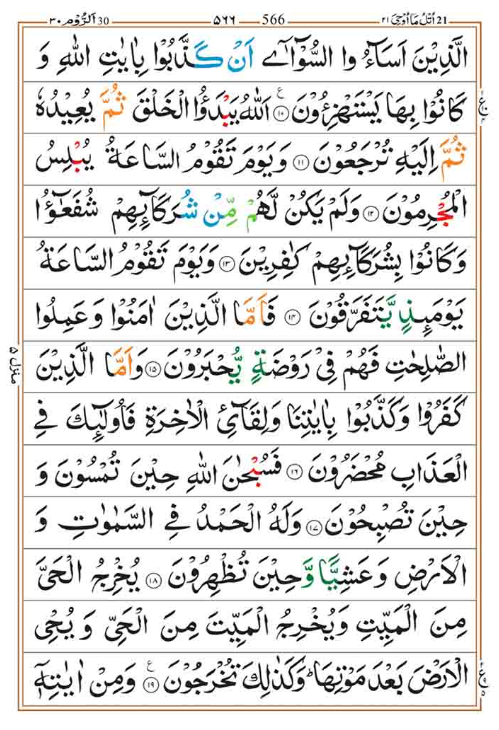 اَلرُّوْم ٣٠ 30 ٥٦٦ 566 اُتْلُ مَاۤ اُوْحِیَ ٢١ 21
الَّذِیْنَ اَسَآءُ وا السُّوْٓاٰۤی اَنْ كَذَّبُوْا بِاٰیٰتِ اللّٰهِ وَ
كَانُوْا بِهَا یَسْتَهْزِءُوْنَ ۝۱۰ ع اَللّٰهُ یَبْدَؤُا الْخَلْقَ ثُمَّ یُعِیْدُهٗ
ثُمَّ اِلَیْهِ تُرْجَعُوْنَ ۝۱۱ وَ یَوْمَ تَقُوْمُ السَّاعَةُ یُبْلِسُ
الْمُجْرِمُوْنَ ۝۱۲ وَ لَمْ یَكُنْ لَّهُمْ مِّنْ شُرَكَآئِهِمْ شُفَعٰٓؤُا
وَ كَانُوْا بِشُرَكَآئِهِمْ كٰفِرِیْنَ ۝۱۳ وَ یَوْمَ تَقُوْمُ السَّاعَةُ
یَوْمَىِٕذٍ یَّتَفَرَّقُوْنَ ۝۱۴ فَاَمَّا الَّذِیْنَ اٰمَنُوْا وَ عَمِلُوا
الصّٰلِحٰتِ فَهُمْ فِیْ رَوْضَةٍ یُّحْبَرُوْنَ ۝۱۵ وَ اَمَّا الَّذِیْنَ
كَفَرُوْا وَ كَذَّبُوْا بِاٰیٰتِنَا وَ لِقَآئِ الْاٰخِرَةِ فَاُولٰٓىِٕكَ فِی
الْعَذَابِ مُحْضَرُوْنَ ۝۱۶ فَسُبْحٰنَ اللّٰهِ حِیْنَ تُمْسُوْنَ وَ
حِیْنَ تُصْبِحُوْنَ ۝۱۷ وَ لَهُ الْحَمْدُ فِی السَّمٰوٰتِ وَ
الْاَرْضِ وَ عَشِیًّا وَّ حِیْنَ تُظْهِرُوْنَ ۝۱۸ یُخْرِجُ الْحَیَّ
مِنَ الْمَیِّتِ وَ یُخْرِجُ الْمَیِّتَ مِنَ الْحَیِّ وَ یُحْیِ
الْاَرْضَ بَعْدَ مَوْتِهَا ؕ وَ كَذٰلِكَ تُخْرَجُوْنَ ۝۱۹ ع وَ مِنْ اٰیٰتِهٖۤ
منزل ٥